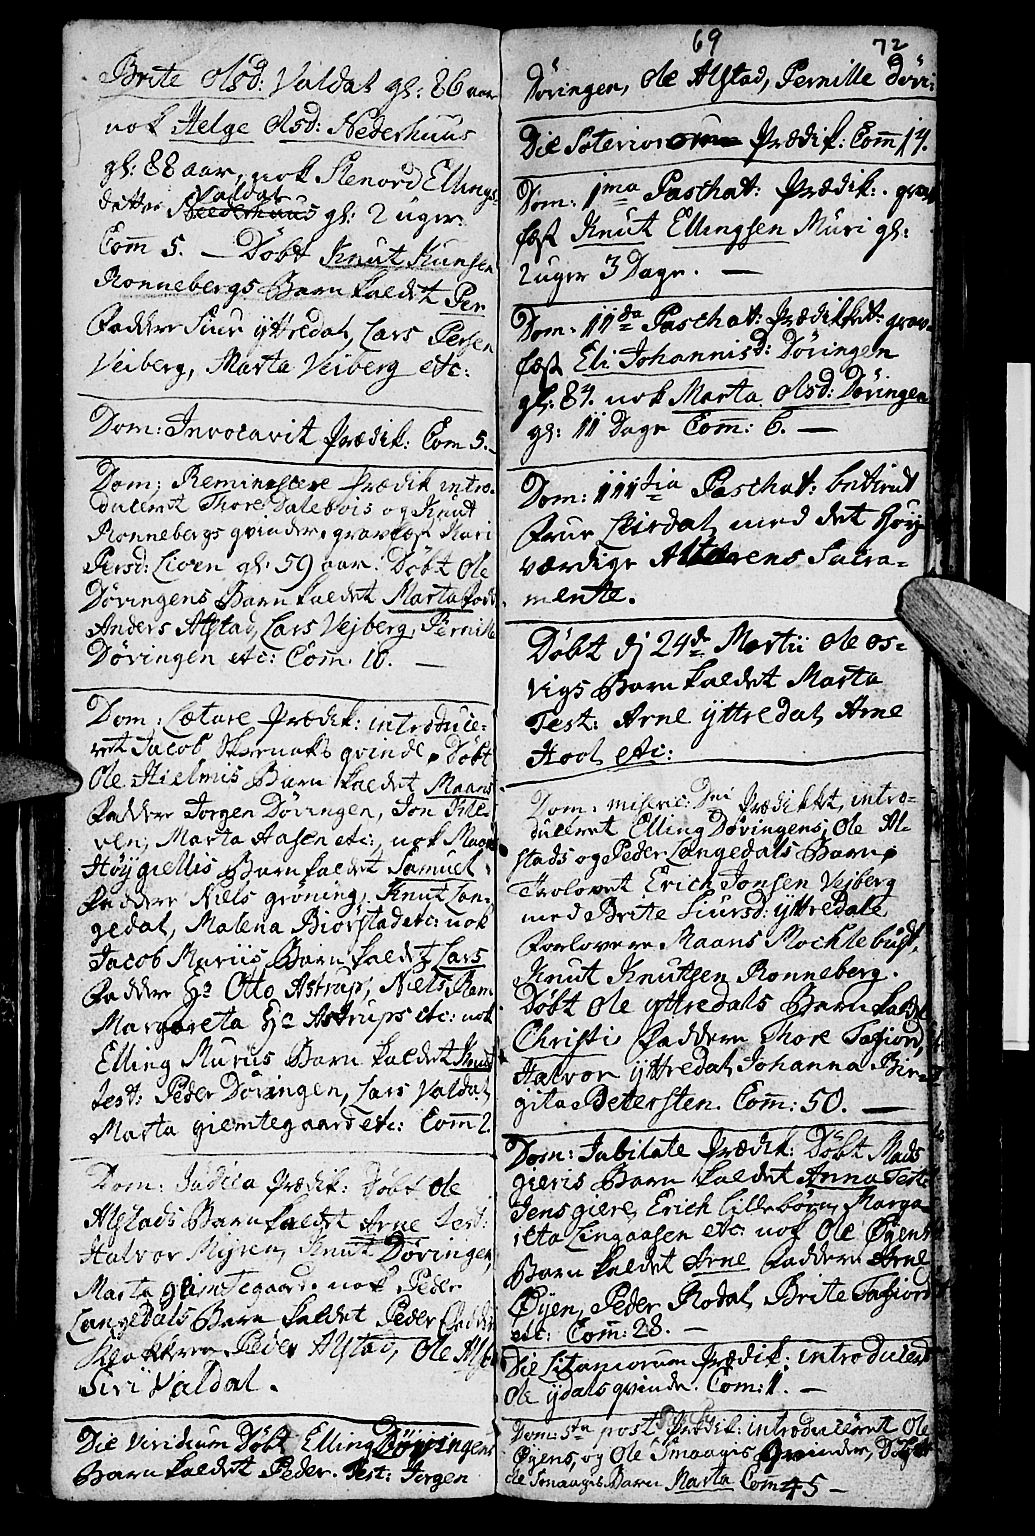 Brite Olsd: Valdal gl: 86 aar
nok Helge Olsd: Nederhuus
gl: 88 aar, nok Stenord Ellings-
datter Valdal gl: 2 uger.
Com̄ 5. — Døbt Knut Kunsen
Ronnebergs Barn kaldet Per
Faddere Siur Yttredal, Lars Persen
Veiberg, Marta Veiberg etc:
Dom: Invocavit Prædik: Com 5.
Dom: Reminiscere Prædik intro-
duceret Thore Dalebois og Knut
Ronnebergs qvinder, gravfæst Kari
Persd: Lioen gl: 59 aar. Døbt Ole
Døvingens Barn kaldet Marta Fadd
Anders Alstad, Lars Vejberg, Pernille
Døvingen etc: Com. 10. —
Dom: Lætare Prædik: introduce-
ret Jacob qvinde, Døbt
Ole Hielmis Barn kaldet Maans
Faddere Jorgen Døvingen, Jon
Marta Aasen etc: nok
Høygiellis Barn kaldet Samuel
Faddere Niels grøning, Knut Lan-
gedal, Malena Biorstad etc: nok
Jacob Muriis Barn kaldet Lars
Faddere Hr Otto Astrup, Niels Ram
Margareta Hr Astrups etc: nok
Elling Muriis Barn kaldet Knut
test: Peder Døvingen, Lars Valdal
Marta giemtegaard etc: Com̄ 2.
Dom: Judica Prædik: Døbt Ole
Alstads Barn kaldet Arne test:
Halvor Myren, Knut Døvingen,
Marta giemtegaard. nok Peder
Langedals Barn kaldet Peder Fadder
Peder Alstad, Ole Alst
Siri Valdal.
Die Viridium Døbt Elling Døvingens
Barn kaldet Peder. Test: Jorgen
69 72
Døvingen, Ole Alstad, Pernille Døvi:
Die Soterior Prædik: Com̄ 14.
Dom: 1ma Paschat: Prædik: grav
fæst Knut Ellingsen Muri gl:
2 uger 3 Dage. —
Dom: 11da Paschat: Prædikket: grav-
fæst Eli Johannisd: Døvingen
gl: 84. nok Marta Olsd: Døvingen
gl: 11 Dage Com̄: 6. —
Dom: 111tia Paschat: betient
Frue Leirdal med det Høy-
værdige Alterens Sacra-
mente.
Døbt dj 24de Martii Ole Os-
vigs Barn kaldet Marta
Test: Arne Yttredal, Arne
Hool etc:
Dom: miseric: Dni Prædikket, intro-
duceret Elling Døvingens, Ole Al-
stads og Peder Langedals Barn
Trolovet Erich Jonsen Vejberg
med Brite Siursd: Yttredale
Forlovere Maans Mochlebust,
Knut Knutsen Ronneberg.
Døbt Ole Yttredals Barn kaldet
Christi Faddere Thore Tafiord,
Halvor Yttredal, Johanna Bir-
gita Petersten. Com̄: 50. —
Dom: Jubilate Prædik: Døbt Mads
gieris Barn kaldet Anna Test:
Jens giere, Erich Lillebøen, Marga-
reta Lingaasen etc: nok Ole Øyens
Barn kaldet Arne Faddere Arne
Øyen, Peder Rodal, Brite Tafiord
etc: Com̄: 28. —
Die Litaniorum Prædik: introduceret
Ole Ydals qvinde. Com: 11. —
Dom: 5ta post Pasch Prædik: introduceret Ole
Øyens, og Ole Smaagis Qvinder, Døbt
Ole Smaagis Barn Marta Com 45 —